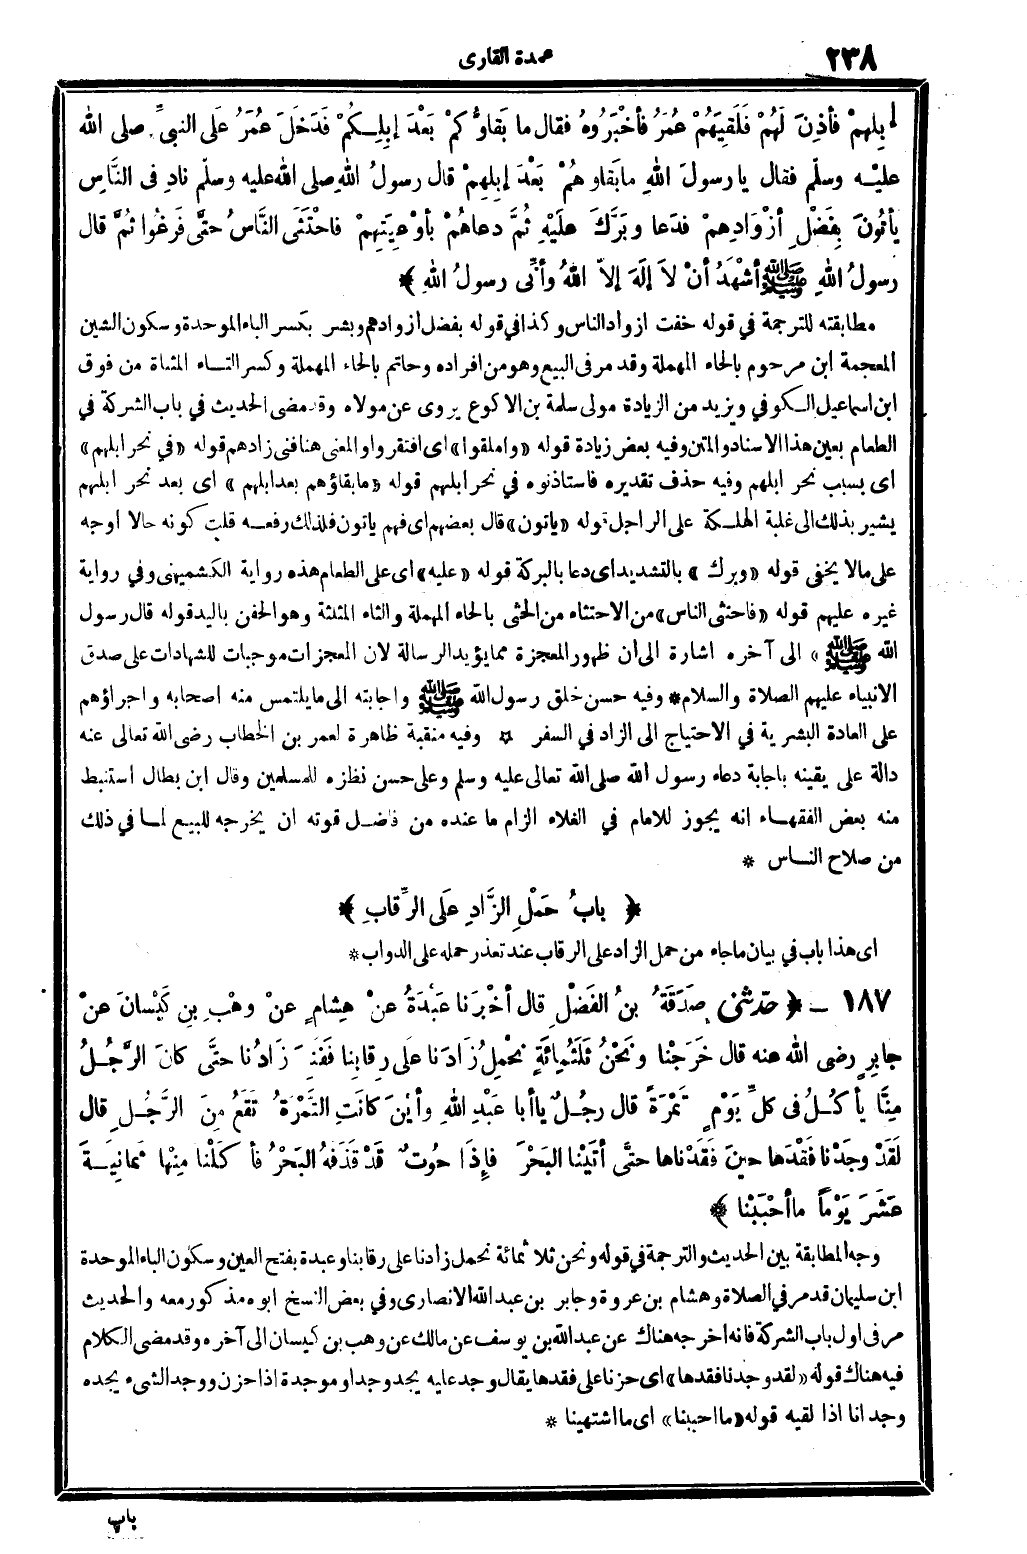 ٢٣٨
عمدة القارى
إبِلِهِمْ فأَذِنَ لَهُمْ فَلَقِيَهُمْ عُمَرُ فأخْبَرُوهُ فقال ما بَقاؤُكمْ بَعْدَ إبِلِكُمْ فَدَخَلَ عُمَرُ علَى النبيِّ صلى الله
عليْه وسلّم فقال يا رسولَ اللهِ ما بَقاوهُمْ بَعْدَ إبِلِهِمْ قال رسولُ اللهِ صلى الله عليه وسلّم نادِ فى النَّاسِ
يأتُونَ بِفَضْلِ أزْوَادِهِمْ فدَعا وبَرَّكَ علَيْهِ ثُمَّ دعاهُمْ بأوْعِيَتِهِمْ فاحْتَثَى النَّاسُ حتَّى فَرَغُوا ثُمَّ قال
رسولُ اللهِ ﷺ أشْهَدُ أنْ لاَ إلَهَ إلاّ اللهُ وأنِّى رسولُ اللهِ ﴾
مطابقته للترجمة في قوله خفت ازواد الناس وكذا في قوله بفضل ازوادهم وبشر بكسر الباء الموحدة وسكون الشين
المعجمة ابن مرحوم بالحاء المهملة وقد مر فى البيع وهو من افراده وحاتم بالحاء المهملة وكسر التاء المثناة من فوق
ابن اسماعيل الكوفي ويزيد من الزيادة مولى سلمة بن الاكوع يروى عن مولاه وقد مضى الحديث في باب الشركة في
الطعام بعين هذا الاسناد والمتن وفيه بعض زيادة قوله «واملقوا» اى افتقروا والمعنى هنا فنى زادهم قوله «في نحر ابلهم»
اى بسبب نحر ابلهم وفيه حذف تقديره فاستاذنوه في نحر ابلهم قوله «ما بقاؤهم بعد ابلهم» اى بعد نحر ابلهم
يشير بذلك الى غلبة الهلكة على الراجل قوله «ياتون» قال بعضهم اى فهم ياتون فلذلك رفعه قلت كونه حالا اوجه
على ما لا يخفى قوله «وبرك» بالتشديد اى دعا بالبركة قوله «عليه» اى على الطعام هذه رواية الكشميهنى وفي رواية
غيره عليهم قوله «فاحتثى الناس» من الاحتثاء من الحثى بالحاء المهملة والثاء المثلثة وهو الحفن باليد قوله قال رسول
الله ﷺ» الى آخره اشارة الى أن ظهور المعجزة مما يؤيد الرسالة لان المعجزات موجبات للشهادات على صدق
الانبياء عليهم الصلاة والسلام * وفيه حسن خلق رسول الله ﷺ واجابته الى ما يلتمس منه اصحابه واجراؤهم
على العادة البشرية في الاحتياج الى الزاد في السفر * وفيه منقبة ظاهرة لعمر بن الخطاب رضى الله تعالى عنه
دالة على يقينه باجابة دعاء رسول الله صلى الله تعالى عليه وسلم وعلى حسن نظره للمسلمين وقال ابن بطال استنبط
منه بعض الفقهاء انه يجوز للامام في الغلاء الزام ما عنده من فاضل قوته ان يخرجه للبيع لما في ذلك
من صلاح الناس *
﴿ بابُ حَمْلِ الزَّادِ علَى الرِّقابِ ﴾
اى هذا باب في بيان ما جاء من حمل الزاد على الرقاب عند تعذر حمله على الدواب *
١٨٧ _ ﴿ حدّثنى صَدَقَةُ بنُ الفَضْلِ قال أخْبَرَنا عَبْدَةُ عنْ هِشامٍ عنْ وهْبِ بنِ كَيْسانَ عنْ
جابِرٍ رضى الله عنه قال خَرَجْنا ونَحْنُ ثَلَثُمِائَةٍ نَحْمِلُ زَادَنا علَى رِقابِنا فَفَنِيَ زَادُنا حتَّى كانَ الرَّجُلُ
مِنَّا يأكُلُ فى كلِّ يَوْمٍ تَمْرَةً قال رجُلٌ يا أبا عَبْدِ اللهِ وأيْنَ كانَتِ التَّمْرَةُ تَقَعُ مِنَ الرَّجُلِ قال
لَقَدْ وجَدْنا فَقْدَها حينَ فَقَدْناها حتَّى أتَيْنا البَحْرَ فإذَا حُوتٌ قدْ قذَفَهُ البَحْرُ فأكَلْنا مِنْها ثَمانِيَةَ
عَشَرَ يَوْماً ما أحْبَبْنا ﴾
وجه المطابقة بين الحديث والترجمة في قوله ونحن ثلاثمائة نحمل زادنا على رقابنا وعبدة بفتح العين وسكون الباء الموحدة
ابن سليمان قد مر في الصلاة وهشام بن عروة وجابر بن عبد الله الانصارى وفي بعض النسخ ابوه مذكور معه والحديث
مر فى اول باب الشركة فانه اخرجه هناك عن عبد الله بن يوسف عن مالك عن وهب بن كيسان الى آخره وقد مضى الكلام
فيه هناك قوله «لقد وجدنا فقدها» اى حزنا على فقدها يقال وجد عليه يجد وجدا وموجدة اذا حزن ووجد الشىء يجده
وجدانا اذا لقيه قوله «ما احببنا» اى ما اشتهينا *
باب